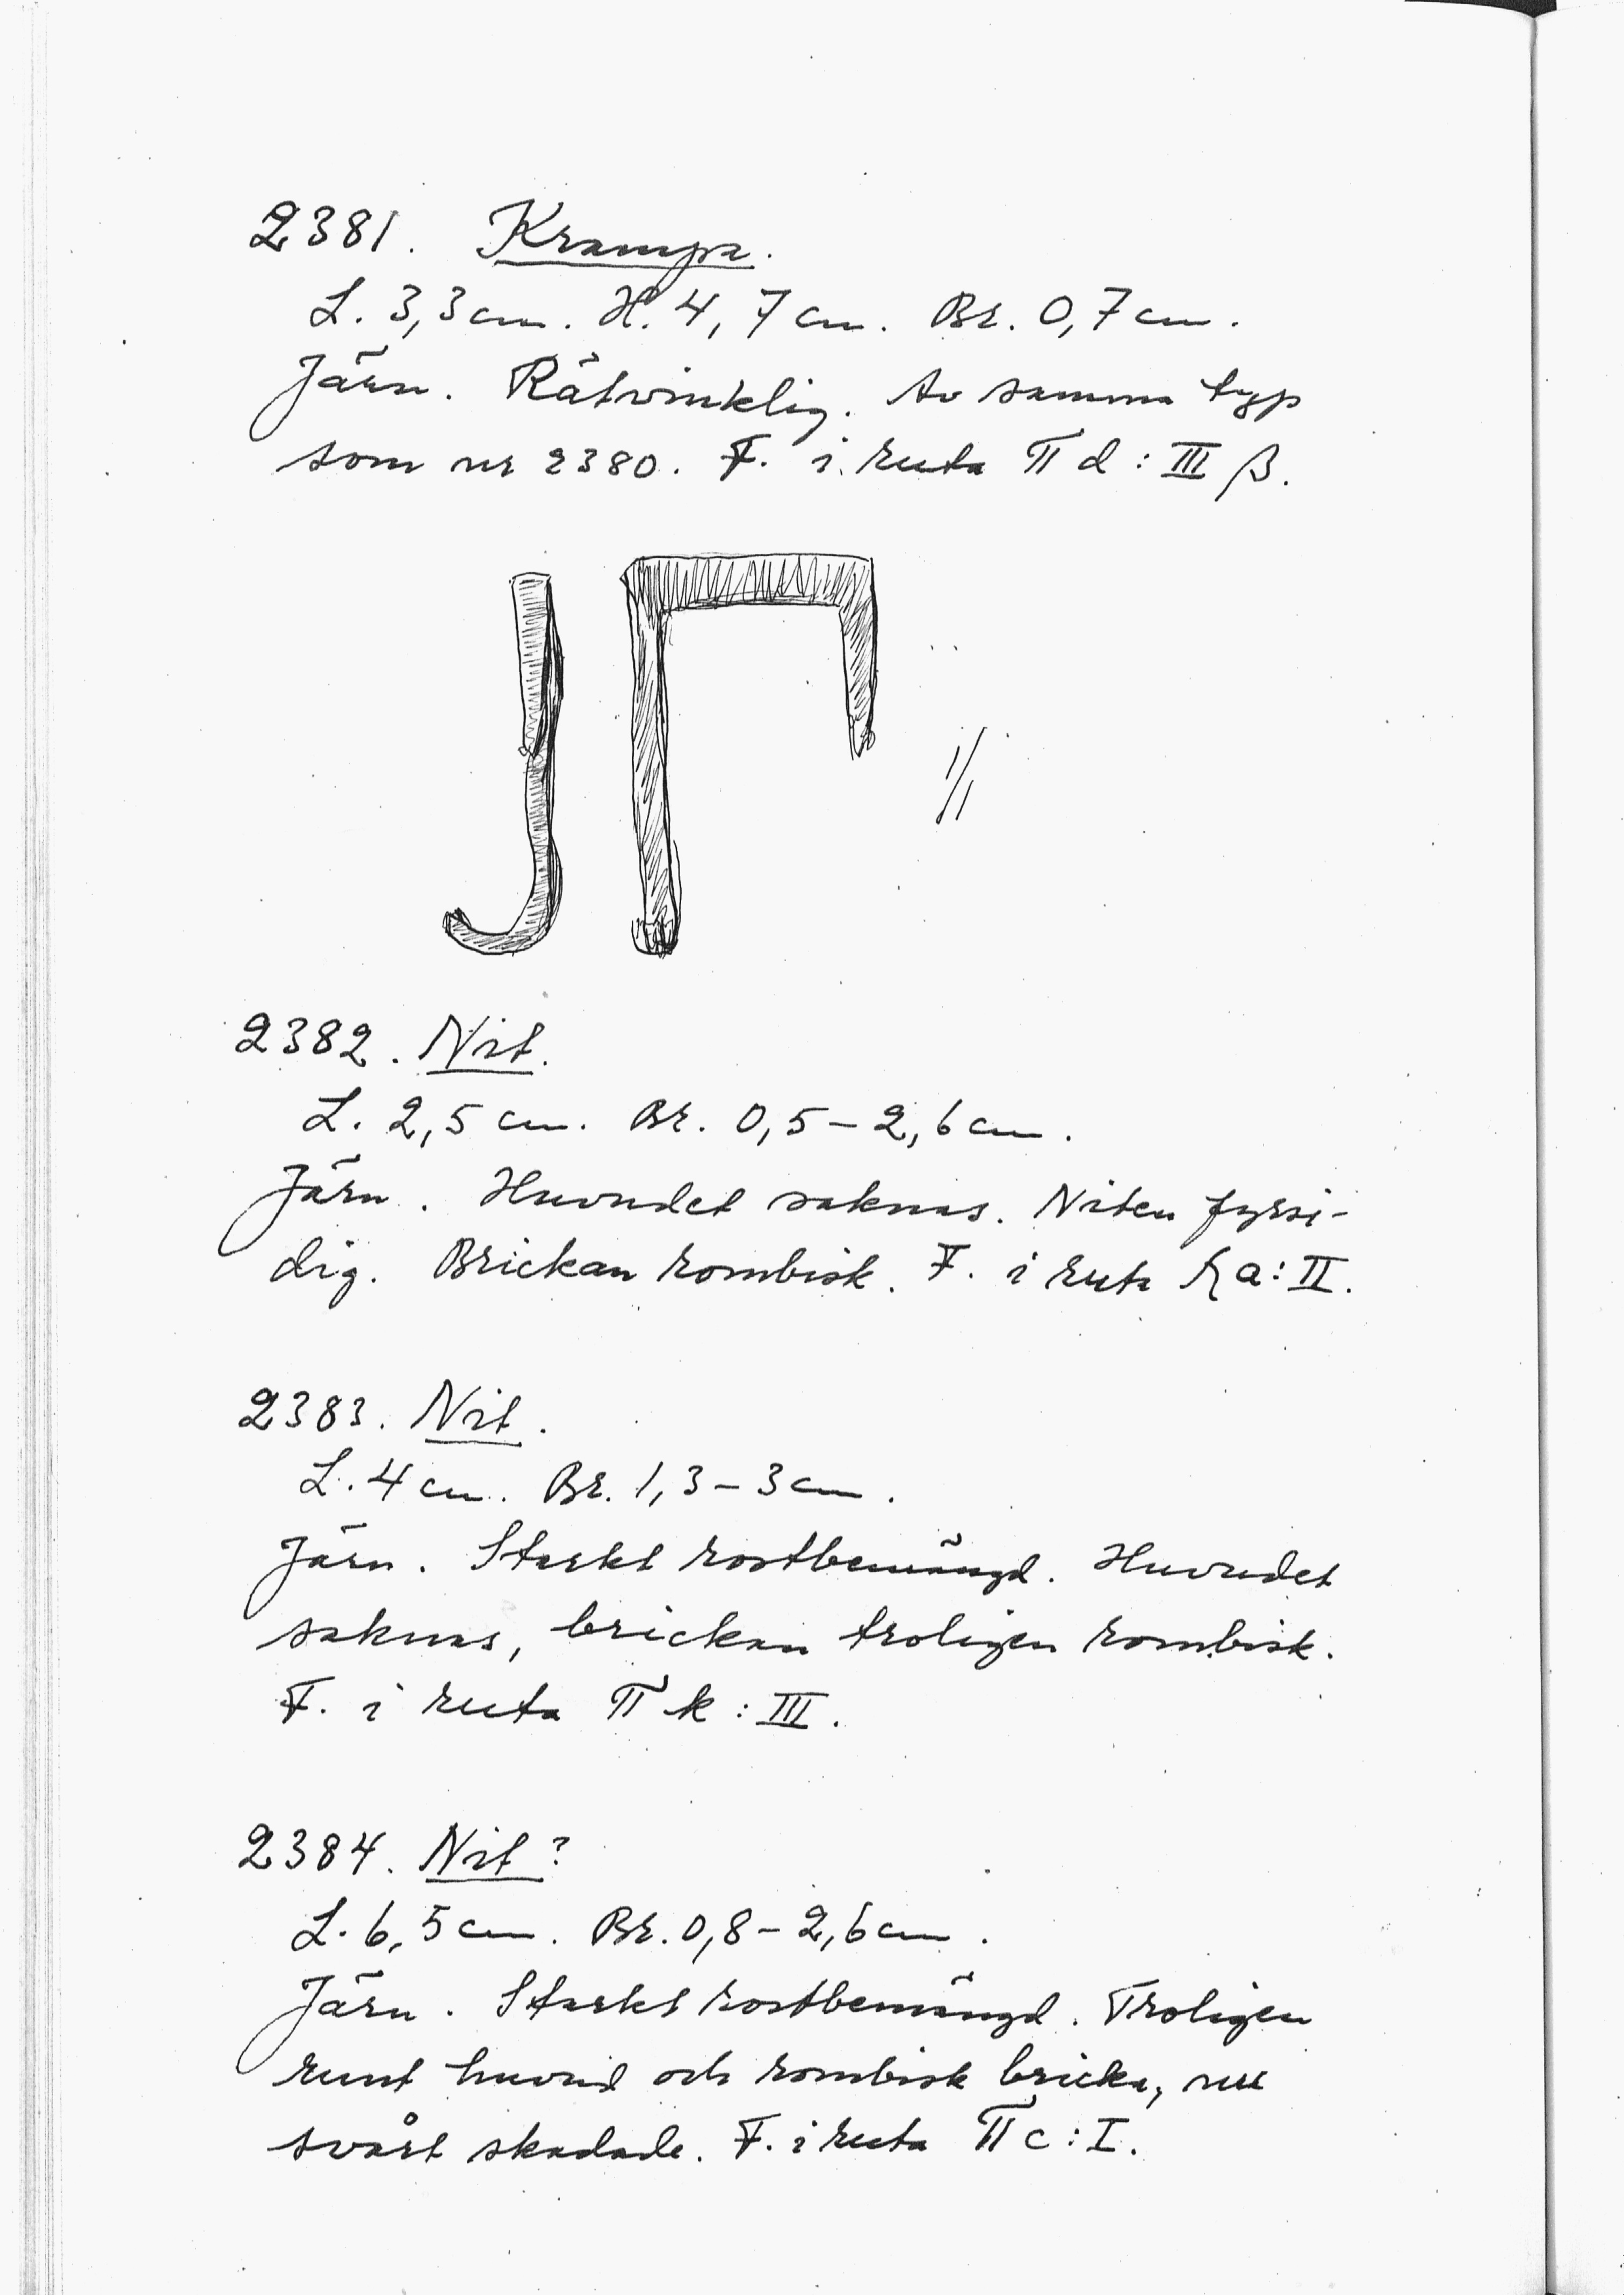 2381. Krampa.
L. 3,3 cm. H. 4,7 cm. Br. 0,7 cm.
Järn. Rätvinklig. Av samma typ
som nr 2380. F. i ruta Π d : III β.
1/1
2382. Nit.
L. 2,5 cm. Br. 0,5 – 2,6 cm.
Järn. Huvudet saknas. Niten fyrsi-
dig. Brickan rombisk. F. i ruta a : II.
2383. Nit.
L. 4 cm. Br. 1,3 – 3 cm.
Järn. Starkt rostbemängd. Huvudet
saknas, brickan troligen rombisk.
F. i ruta Π k : III.
2384. Nit?
L. 6,5 cm. Br. 0,8 – 2,6 cm.
Järn. Starkt rostbemängd. Troligen
runt huvud och rombisk bricka, nu
svårt skadade. F. i ruta Π c : I.